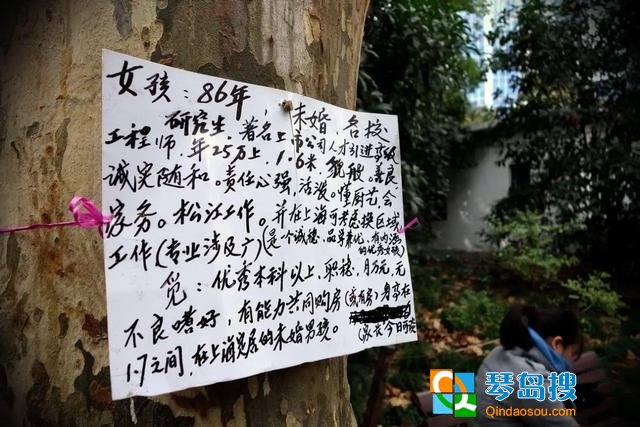 女孩：86年，未婚、名校
研究生，著名上市公司人才引进高级
工程师，年25万上，1.6米，貌般。善良
诚实随和。责任心强，活泼。懂厨艺，会
家务。松江工作。并在上海可考虑换区域
工作(专业涉及广)(是个诚稳、品学兼优、有内涵
的优秀女孩)
觅：优秀本科以上，职稳，月万元，无
不良嗜好，有能力共同购房(或有房)身高在
1.7之间，在上海定居的未婚男孩。
(家长今日
琴岛搜
Qindaosou.com